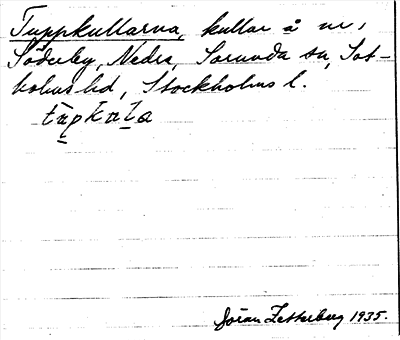 Tuppkullarna, kullar å nr 1
Söderby, Nedra, Sorunda sn, Sot-
holms hd, Stockholms l.
tupkula
Göran Zetterberg 1935.